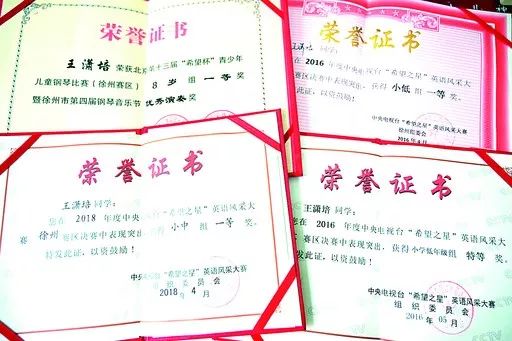 荣誉证书
王潇培 荣获北京第十三届“希望杯”青少年
儿童钢琴比赛（徐州赛区） 8 岁 组 一 等 奖
暨徐州市第四届钢琴音乐节 优秀演奏 奖
荣誉证书
王潇培 同学：
在 2016 年度中央电视台“希望之星”英语风采大
区决赛中表现突出，获得 小低 组 一等 奖。
此证，以资鼓励！
中央电视台“希望之星”英语风采大赛
徐州组委会
2016年4月
荣誉证书
王潇培 同学：
您在 2018 年度中央电视台“希望之星”英语风采大
赛 徐州 赛区决赛中表现突出，获得 小中 组 一等 奖。
特发此证，以资鼓励！
中央电视台“希望之星”英语风采大赛
组织委员会
2018 年 4 月
荣誉证书
王潇培 同学：
您在 2016 年度中央电视台“希望之星”英语风采大
赛 赛区决赛中表现突出，获得 小学低年级组 特等 奖。
特发此证，以资鼓励！
中央电视台“希望之星”英语风采大赛
组织委员会
2016 年 05 月